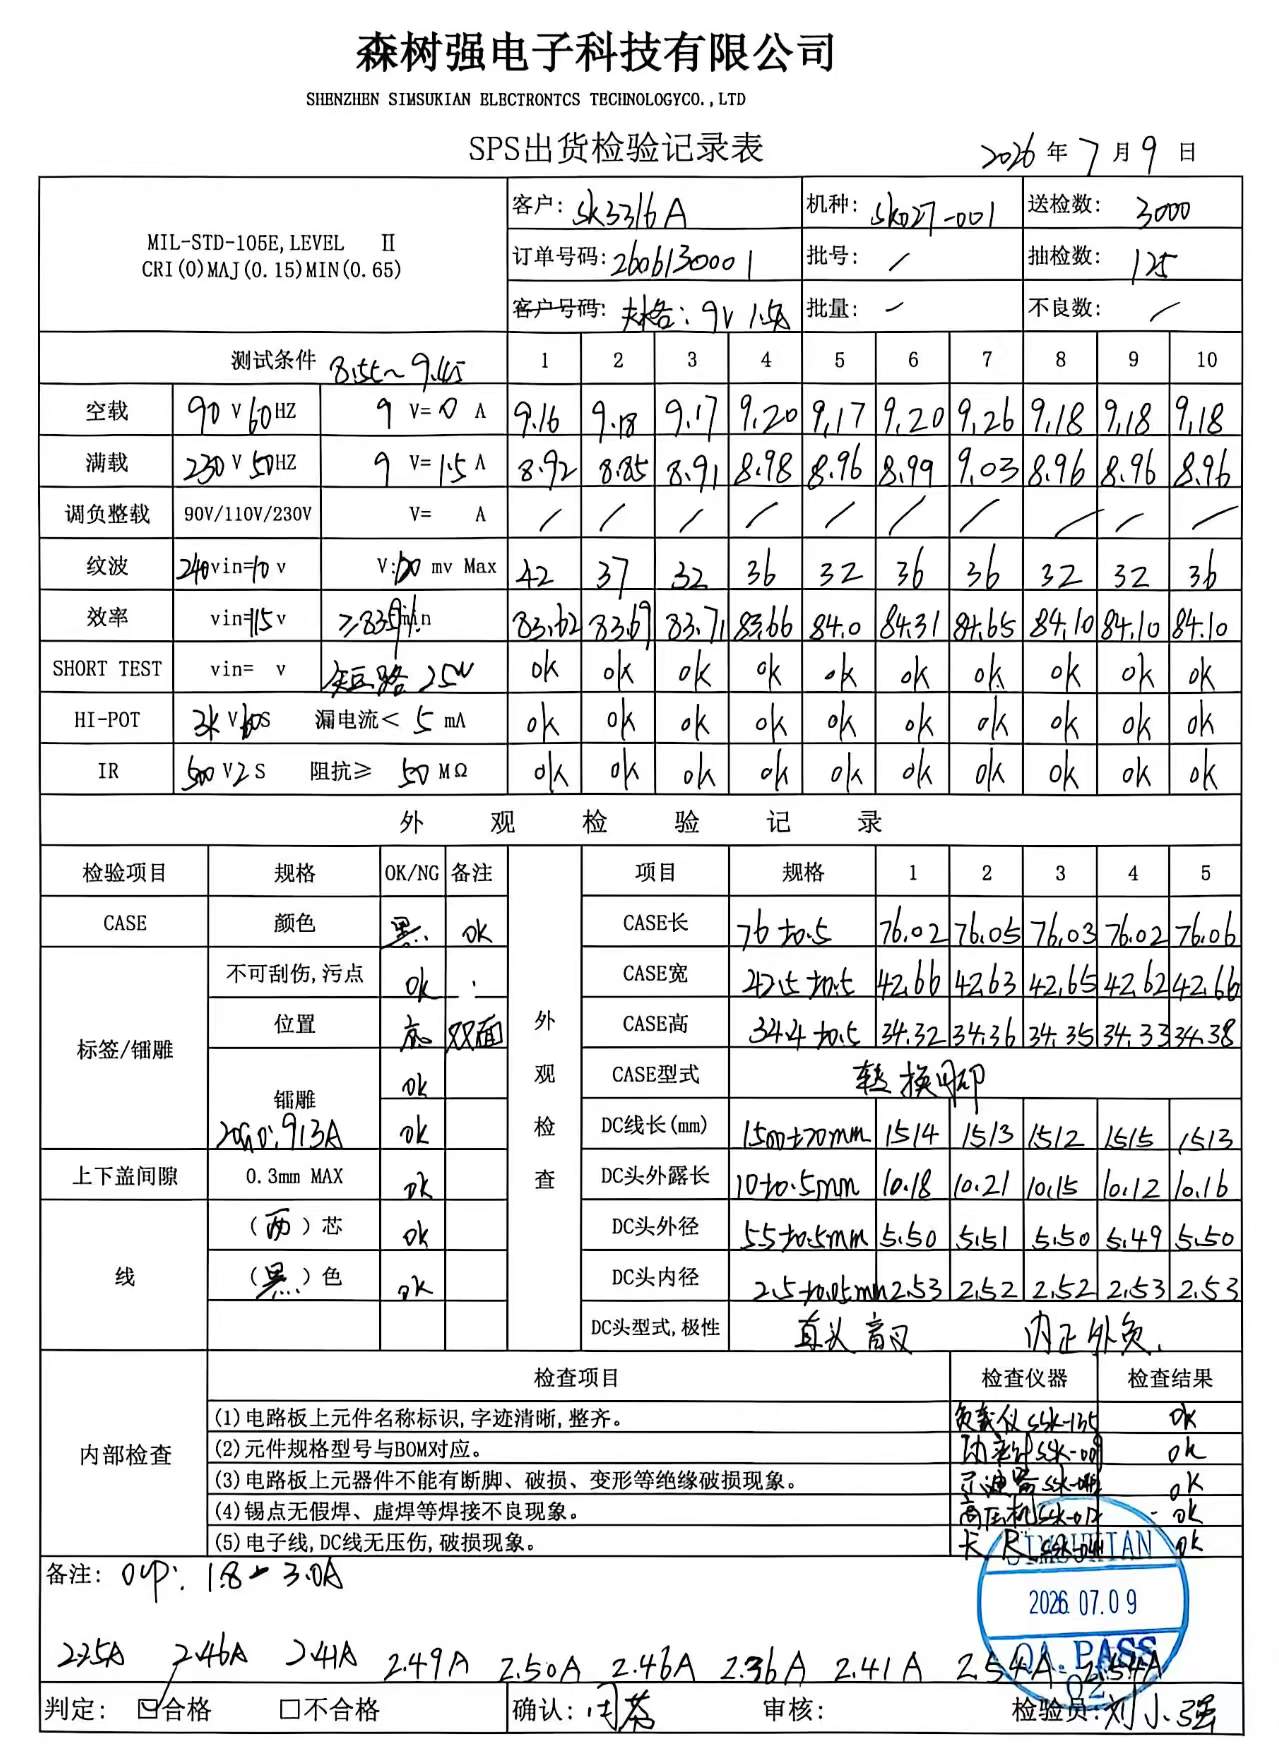 森树强电子科技有限公司
SHENZHEN SIMSUKIAN ELECTRONTCS TECHNOLOGYCO.,LTD
SPS出货检验记录表
2026 年 7 月 9 日
MIL-STD-105E,LEVEL Ⅱ
CRI(0)MAJ(0.15)MIN(0.65)
客户: SK3316A 机种: SK027-001 送检数: 3000
订单号码: 2606130001 批号: / 抽检数: 125
客户号码: 规格: 9V 1.5A 批量: - 不良数: /
测试条件 8.55~9.45 1 2 3 4 5 6 7 8 9 10
空载 90 V 60 HZ 9 V= 0 A 9.16 9.18 9.17 9.20 9.17 9.20 9.26 9.18 9.18 9.18
满载 230 V 50 HZ 9 V= 1.5 A 8.92 8.85 8.91 8.98 8.96 8.99 9.03 8.96 8.96 8.96
调负整载 90V/110V/230V V= A / / / / / / / / / /
纹波 240vin=10 v V:120 mv Max 42 37 32 36 32 36 36 32 32 36
效率 vin=115 v ≥83.5% min 83.62 83.69 83.71 83.66 84.0 84.31 84.65 84.10 84.10 84.10
SHORT TEST vin= v 短路 25W ok ok ok ok ok ok ok ok ok ok
HI-POT 3K V 60S 漏电流< 5 mA ok ok ok ok ok ok ok ok ok ok
IR 500 V 2 S 阻抗≥ 50 MΩ ok ok ok ok ok ok ok ok ok ok
外 观 检 验 记 录
检验项目 规格 OK/NG 备注 外观检查 项目 规格 1 2 3 4 5
CASE 颜色 黑. ok CASE长 76±0.5 76.02 76.05 76.03 76.02 76.06
标签/镭雕 不可刮伤,污点 ok CASE宽 42.5±0.5 42.66 42.63 42.65 42.62 42.66
位置 底 双面 CASE高 34.4±0.5 34.32 34.36 34.35 34.33 34.38
镭雕 ok CASE型式 转换脚
913A ok DC线长(mm) 1500±20mm 1514 1513 1512 1515 1513
上下盖间隙 0.3mm MAX ok DC头外露长 10±0.5mm 10.18 10.21 10.15 10.12 10.16
线 (两)芯 ok DC头外径 5.5±0.5mm 5.50 5.51 5.50 5.49 5.50
(黑.)色 ok DC头内径 2.5±0.05mm 2.53 2.52 2.52 2.53 2.53
DC头型式,极性 直头 音叉 内正外负.
内部检查 检查项目 检查仪器 检查结果
(1)电路板上元件名称标识,字迹清晰,整齐。 负载仪 SSK-135 ok
(2)元件规格型号与BOM对应。 功率计 SSK-009 ok
(3)电路板上元器件不能有断脚、破损、变形等绝缘破损现象。 示波器 ok
(4)锡点无假焊、虚焊等焊接不良现象。 高压机 SSK-012 ok
(5)电子线,DC线无压伤,破损现象。 卡尺 ok
备注: OCP: 1.8~3.0A
SIMSUKIAN
2026.07.09
QA.PASS
02
2.25A 2.46A 2.41A 2.49A 2.50A 2.46A 2.36A 2.41A 2.54A 2.54A
判定: ☑合格 □不合格 确认: 审核: 检验员: 刘小强